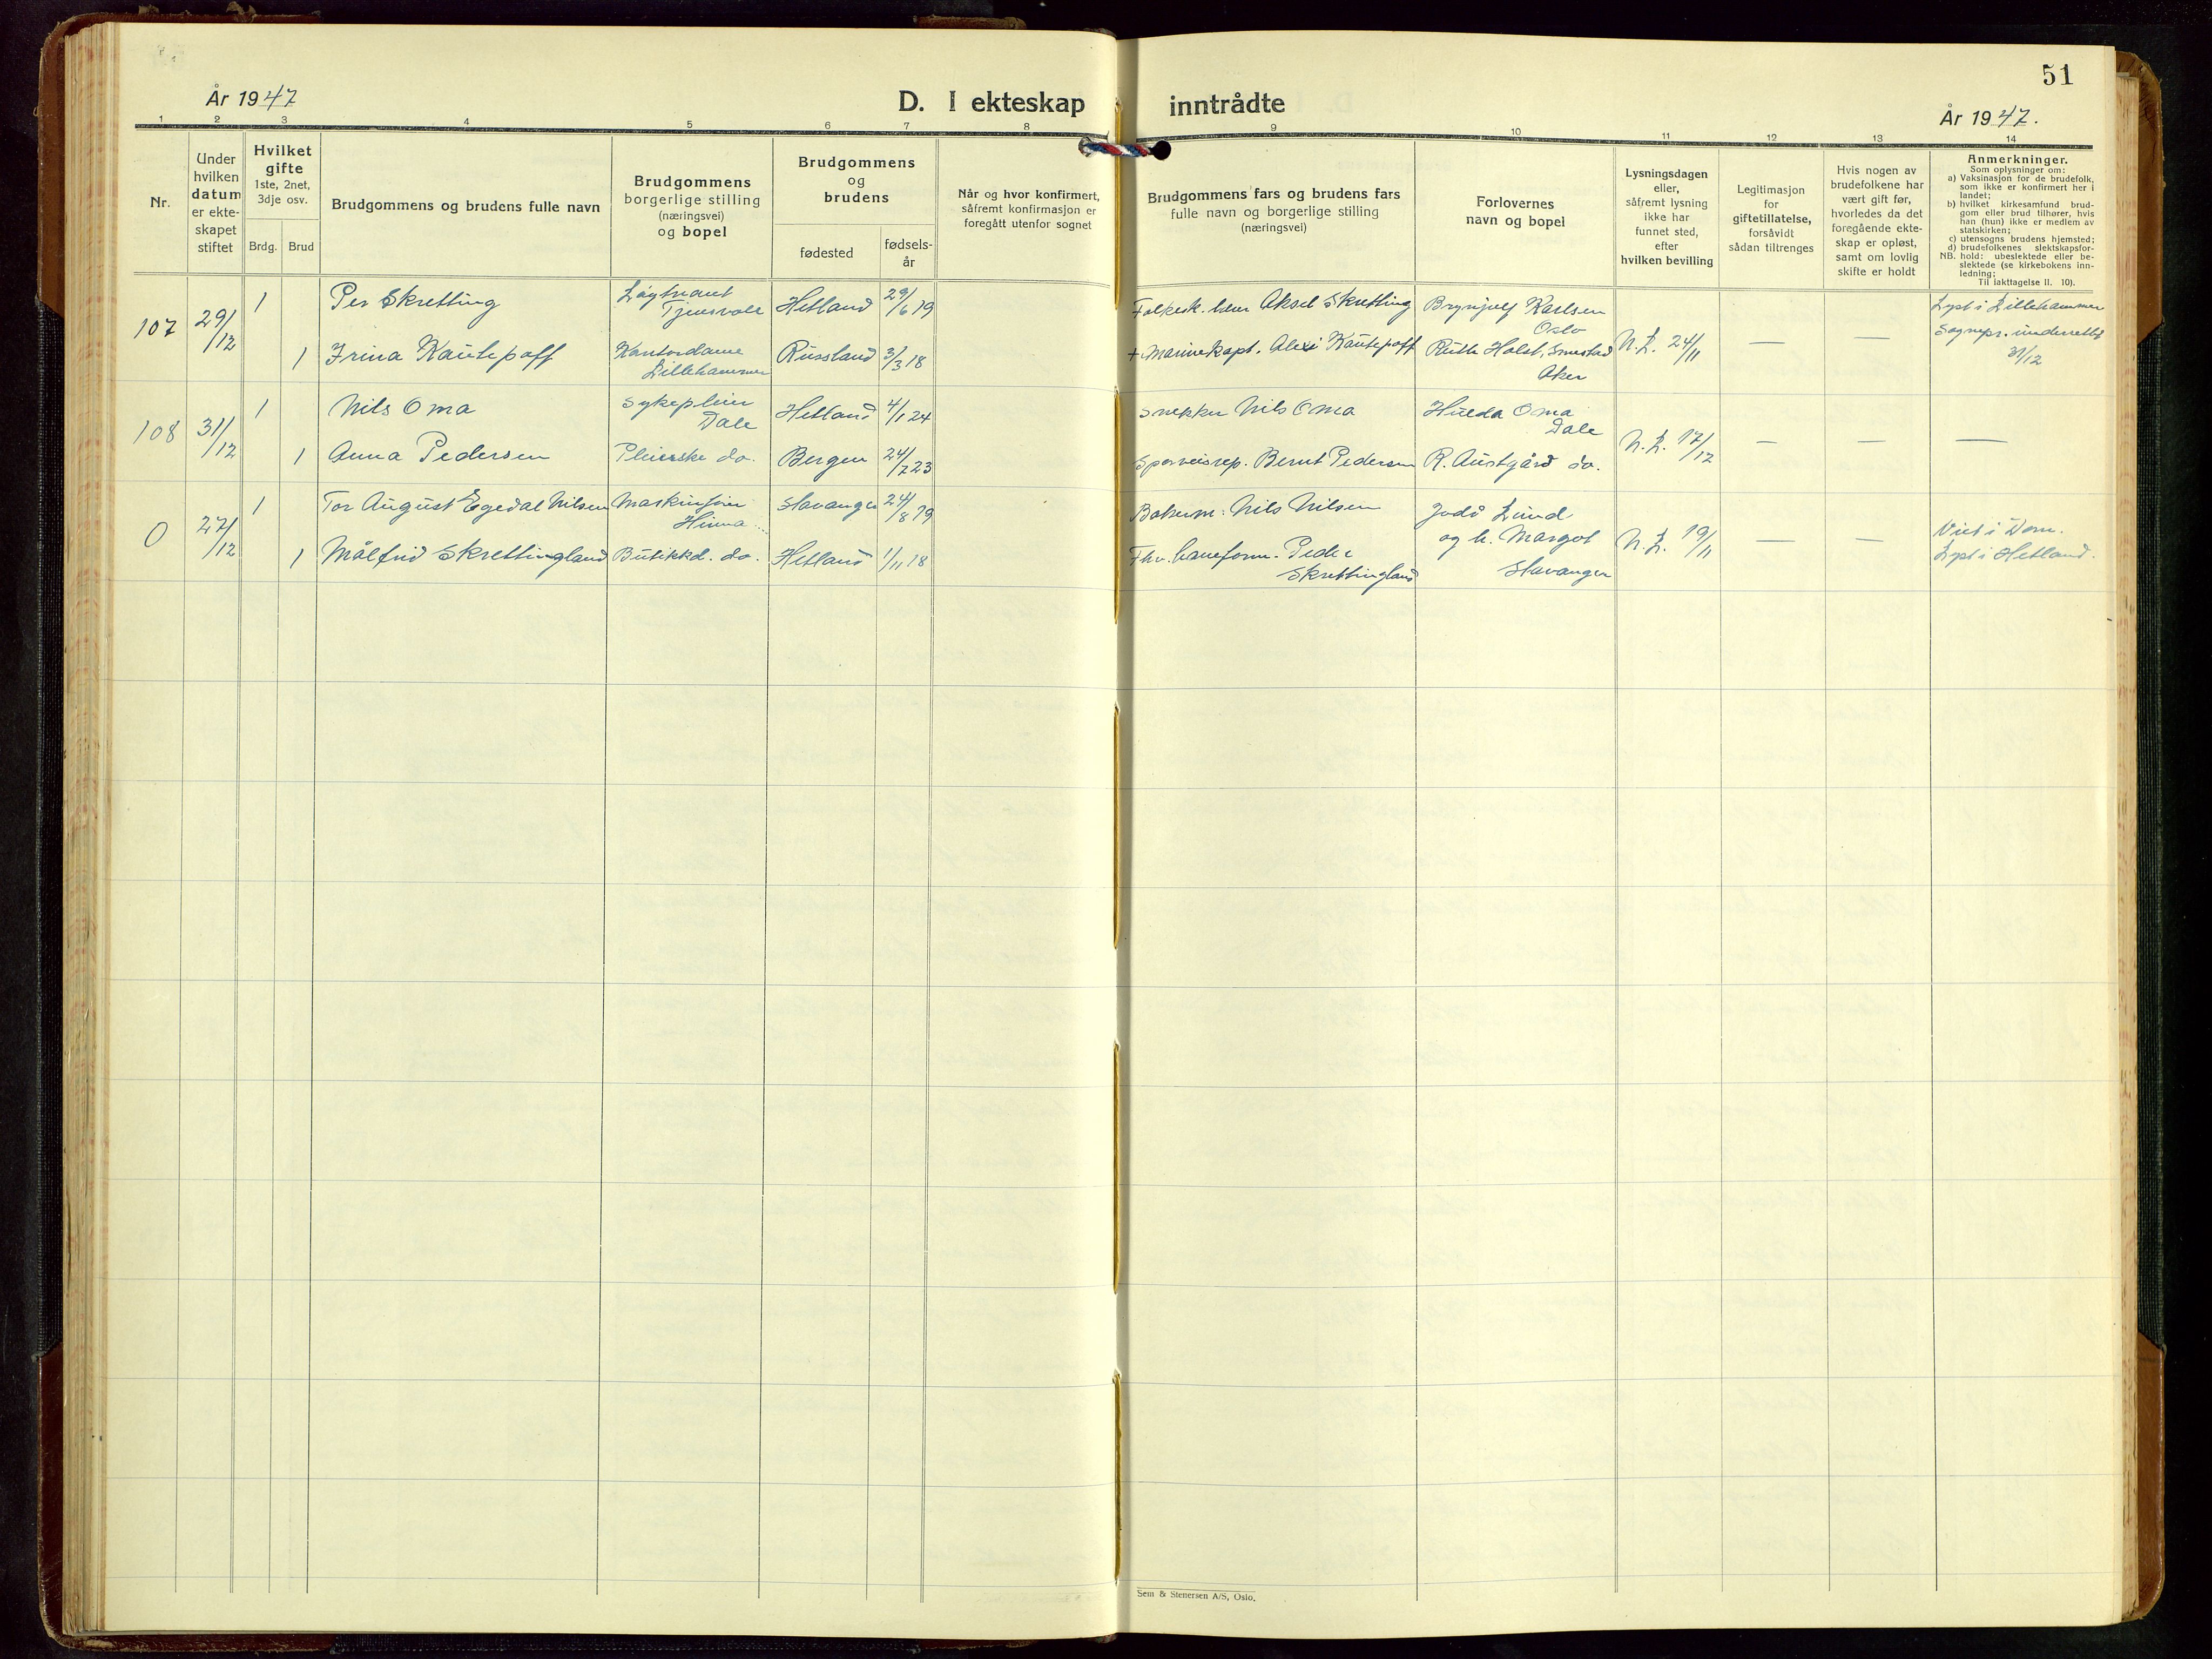 51
År 1947
D. I ekteskap inntrådte
År 1947.
1 2 3 4 5 6 7 8 9 10 11 12 13 14
Nr.
Under
hvilken
datum
er ekte-
skapet
stiftet
Hvilket
gifte
1ste, 2net,
3dje osv.
Brdg. Brud
Brudgommens og brudens fulle navn
Brudgommens
borgerlige stilling
(næringsvei)
og bopel
Brudgommens
og
brudens
fødested
fødsels-
år
Når og hvor konfirmert,
såfremt konfirmasjon er
foregått utenfor sognet
Brudgommens fars og brudens fars
fulle navn og borgerlige stilling
(næringsvei)
Forlovernes
navn og bopel
Lysningsdagen
eller,
såfremt lysning
ikke har
funnet sted,
efter
hvilken bevilling
Legitimasjon
for
giftetillatelse,
forsåvidt
sådan tiltrenges
Hvis nogen av
brudefolkene har
vært gift før,
hvorledes da det
foregående ekte-
skap er opløst,
samt om lovlig
skifte er holdt
Anmerkninger.
Som oplysninger om:
a) Vaksinasjon for de brudefolk,
som ikke er konfirmert her i
landet;
b) hvilket kirkesamfund brud-
gom eller brud tilhører, hvis
han (hun) ikke er medlem av
statskirken;
c) utensogns brudens hjemsted;
d) brudefolkenes slektskapsfor-
NB. hold: ubeslektede eller be-
slektede (se kirkebokens inn-
ledning;
Til iakttagelse II. 10).
107 29/12
1 Per Skretting Løytnant Tjensvoll Hetland 29/6 19 Folkesk. lærer Aksel Skretting Brynjulf Karlsen Oslo
1 Irina Kautepoff Kontordame Lillehammer Russland 3/3 18 + Marinekapt. Alexi Kautepoff Ruth Holst, Smestad Aker
N.L. 24/11 — —
Lyst i Lillehammer
Sognepr. underrettet
31/12
108 31/12
1 Nils Oma Sykepleier Dale Hetland 4/1 24 Snekker Nils Oma Hulda Oma Dale
1 Anna Pedersen Pleierske do. Bergen 24/7 23 Sporveisrep. Bernt Pedersen R. Austgård do.
N.L. 17/12 — — —
0 27/12
1 Tor August Egedal Nilsen Hinna Stavanger 24/8 19 Bakerm. Nils Nilsen Lund
1 Målfrid Skrettingland Butikkd. do. Hetland 1/11 18 Fhv. Peder Skrettingland og h. Margot Stavanger
N.L. 19/11 — —
Viet i Dom.
Lyst i Hetland.
Sem & Stenersen A/S, Oslo.